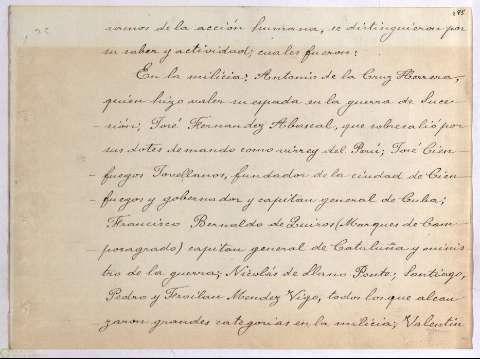 ramos de la acción humana, se distinguieron por
su saber y actividad; cuales fueron:
En la milicia: Antonio de la Cruz Herrera,
quién hizo valer su espada en la guerra de suce-
sión; José Fernandez Abascal, que sobresalió por
sus dotes de mando como virrey del Perú; José Cien-
fuegos Jovellanos, fundador de la ciudad de Cien-
fuegos y gobernador y capitan general de Cuba;
Francisco Bernaldo de Quiros (Marques de Cam-
posagrado) capitan general de Cataluña y minis-
tro de la guerra; Nicolás de Llano Ponte; Santiago,
Pedro y Froilan Mendez Vigo, todos los que alcan-
zaron grandes categorías en la milicia; Valentín